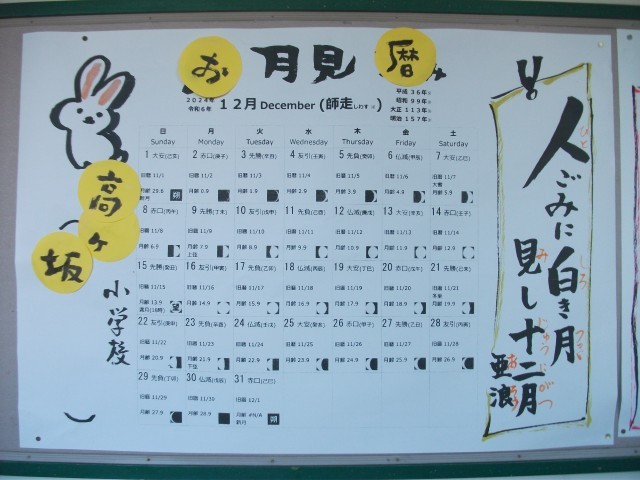 お月見暦
2024年
令和6年
12月 December (師走しわす)
平成 36年
昭和 99年
大正 113年
明治 157年
高ヶ坂
小学校
日 月 火 水 木 金 土
Sunday Monday Tuesday Wednesday Thursday Friday Saturday
1 大安(己亥) 2 赤口(庚子) 3 先勝(辛丑) 4 友引(壬寅) 5 先負(癸卯) 6 仏滅(甲辰) 7 大安(乙巳)
旧暦 11/1 旧暦 11/2 旧暦 11/3 旧暦 11/4 旧暦 11/5 旧暦 11/6 旧暦 11/7
大雪
月齢 29.6 月齢 0.9 月齢 1.9 月齢 2.9 月齢 3.9 月齢 4.9 月齢 5.9
新月 朔
8 赤口(丙午) 9 先勝(丁未) 10 友引(戊申) 11 先負(己酉) 12 仏滅(庚戌) 13 大安(辛亥) 14 赤口(壬子)
旧暦 11/8 旧暦 11/9 旧暦 11/10 旧暦 11/11 旧暦 11/12 旧暦 11/13 旧暦 11/14
月齢 6.9 月齢 7.9 月齢 8.9 月齢 9.9 月齢 10.9 月齢 11.9 月齢 12.9
上弦
15 先勝(癸丑) 16 友引(甲寅) 17 先負(乙卯) 18 仏滅(丙辰) 19 大安(丁巳) 20 赤口(戊午) 21 先勝(己未)
旧暦 11/15 旧暦 11/16 旧暦 11/17 旧暦 11/18 旧暦 11/19 旧暦 11/20 旧暦 11/21
冬至
月齢 13.9 月齢 14.9 月齢 15.9 月齢 16.9 月齢 17.9 月齢 18.9 月齢 19.9
満月(18時)
22 友引(庚申) 23 先負(辛酉) 24 仏滅(壬戌) 25 大安(癸亥) 26 赤口(甲子) 27 先勝(乙丑) 28 友引(丙寅)
旧暦 11/22 旧暦 11/23 旧暦 11/24 旧暦 11/25 旧暦 11/26 旧暦 11/27 旧暦 11/28
月齢 20.9 月齢 21.9 月齢 22.9 月齢 23.9 月齢 24.9 月齢 25.9 月齢 26.9
下弦
29 先負(丁卯) 30 仏滅(戊辰) 31 赤口(己巳)
旧暦 11/29 旧暦 11/30 旧暦 12/1
月齢 27.9 月齢 28.9 月齢 #N/A
新月 朔
人ごみに白き月
見し十二月
亜浪